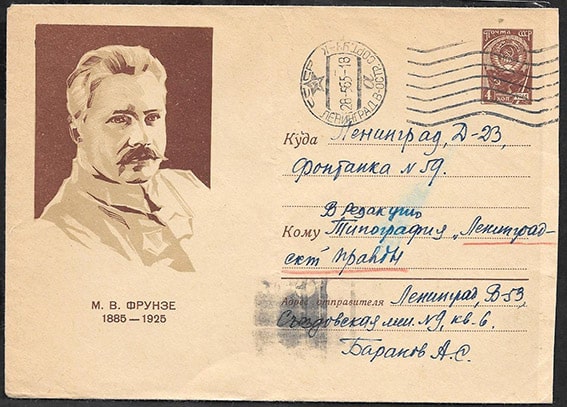 ПОЧТА СССР
4 КОП.
ЛЕНИНГРАД
28-5 65-18
Куда Ленинград, Д-23,
Фонтанка №59.
В редакцию
Кому Типография „Ленинград-
ск Правды
Адрес отправителя Ленинград, В-53,
Съездовская лин. №9, кв-6.
Баранов А.С.
М. В. ФРУНЗЕ
1885—1925